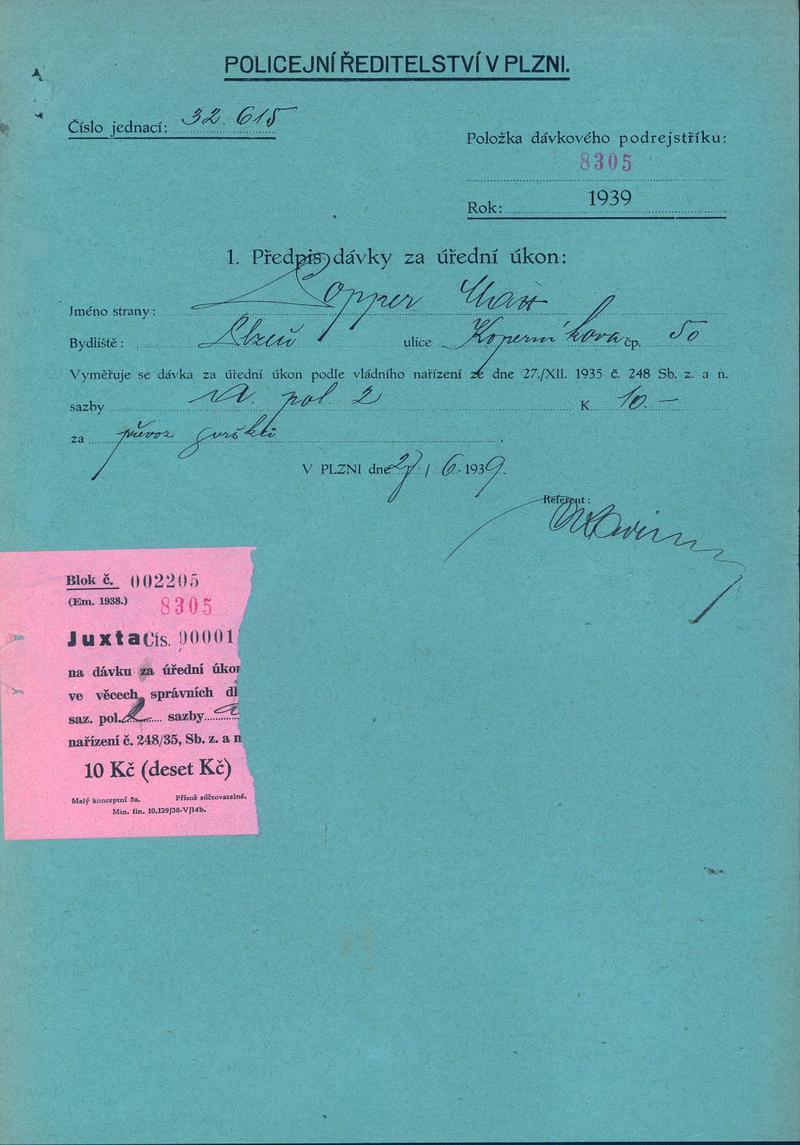 POLICEJNÍ ŘEDITELSTVÍ V PLZNI.
Číslo jednací: 32.615
Položka dávkového podrejstříku:
8305
Rok: 1939
1. Předpis dávky za úřední úkon:
Jméno strany: Popper Max
Bydliště: Plzeň ulice Koperníkova čp. 50
Vyměřuje se dávka za úřední úkon podle vládního nařízení ze dne 27./XII. 1935 č. 248 Sb. z. a n.
sazby A. pol. 2 K 10.–
za převoz
V PLZNI dne 27/6.1939.
Referent:
Blok č. 002205
(Em. 1938.) 8305
Juxta Čís. 00001
na dávku za úřední úkon
ve věcech správních dl
saz. pol. 2 sazby a
nařízení č. 248/35, Sb. z. a n
10 Kč (deset Kč)
Malý konceptní 5a. Přísně súčtovatelné.
Min. fin. 10.129/38-V/14b.